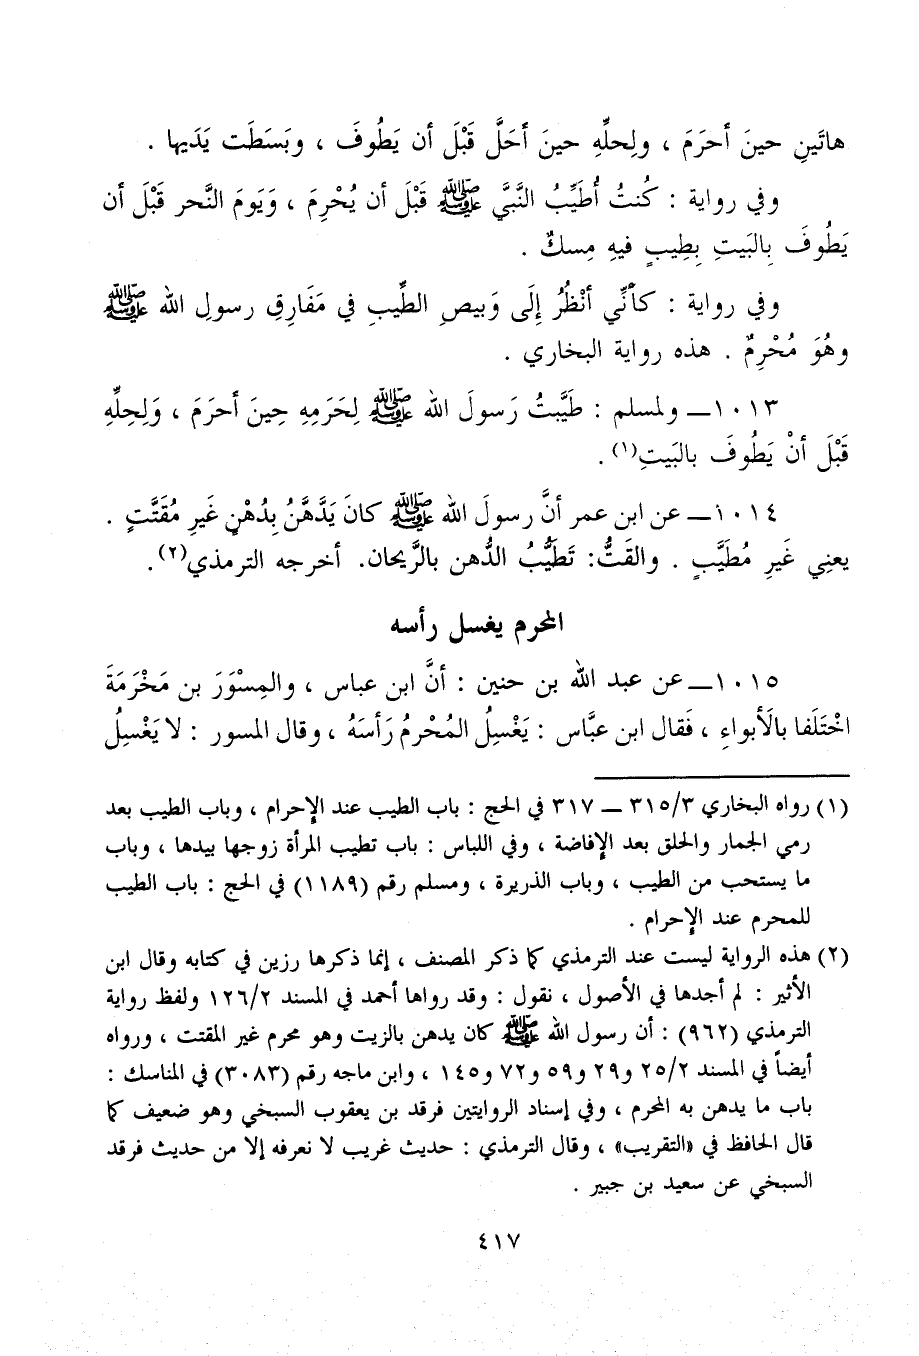 هاتَينِ حينَ أحرَمَ ، ولِحلِّهِ حينَ أحَلَّ قَبْلَ أن يَطُوفَ ، وبَسَطَت يَدَيها .
وفي رواية : كُنتُ أُطَيِّبُ النَّبيَّ ﷺ قَبْلَ أن يُحْرِمَ ، وَيَومَ النَّحر قَبْلَ أن
يَطُوفَ بِالبَيتِ بِطِيبٍ فيهِ مِسكٌ .
وفي رواية : كأنِّي أنْظُرُ إِلَى وَبيصِ الطِّيبِ في مَفَارِقِ رسولِ الله ﷺ
وهُوَ مُحْرِمٌ . هذه رواية البخاري .
١٠١٣ــ ولمسلم : طَيَّبتُ رَسولَ الله ﷺ لِحَرَمِهِ حِينَ أحرَمَ ، وَلِحِلِّهِ
قَبْلَ أنْ يَطُوفَ بالبَيتِ(١) .
١٠١٤ــ عن ابن عمر أنَّ رسولَ الله ﷺ كانَ يَدَّهنُ بِدُهْنٍ غَيرِ مُقَتَّتٍ .
يعنِي غَيرِ مُطَيَّبٍ . والقَتُّ: تَطَيُّبُ الدُّهن بالرَّيحان. أخرجه الترمذي(٢).
المحرم يغسل رأسه
١٠١٥ــ عن عبد الله بن حنين : أنَّ ابن عباس ، والمِسْوَرَ بن مَخْرَمَةَ
اخْتَلَفا بالَأبواءِ ، فَقال ابن عبَّاس : يَغْسِلُ المُحْرمُ رَأسَهُ ، وقال المسور : لا يَغْسِلُ
(١) رواه البخاري ٣١٥/٣ ــ ٣١٧ في الحج : باب الطيب عند الإحرام ، وباب الطيب بعد
رمي الجمار والحلق بعد الإفاضة ، وفي اللباس : باب تطيب المرأة زوجها بيدها ، وباب
ما يستحب من الطيب ، وباب الذريرة ، ومسلم رقم (١١٨٩) في الحج : باب الطيب
للمحرم عند الإحرام .
(٢) هذه الرواية ليست عند الترمذي كما ذكر المصنف ، إنما ذكرها رزين في كتابه وقال ابن
الأثير : لم أجدها في الأصول ، نقول : وقد رواها أحمد في المسند ١٢٦/٢ ولفظ رواية
الترمذي (٩٦٢) : أن رسول الله ﷺ كان يدهن بالزيت وهو محرم غير المقتت ، ورواه
أيضاً في المسند ٢٥/٢ و٢٩ و٥٩ و٧٢ و١٤٥ ، وابن ماجه رقم (٣٠٨٣) في المناسك :
باب ما يدهن به المحرم ، وفي إسناد الروايتين فرقد بن يعقوب السبخي وهو ضعيف كما
قال الحافظ في «التقريب» ، وقال الترمذي : حديث غريب لا نعرفه إلا من حديث فرقد
السبخي عن سعيد بن جبير .
٤١٧